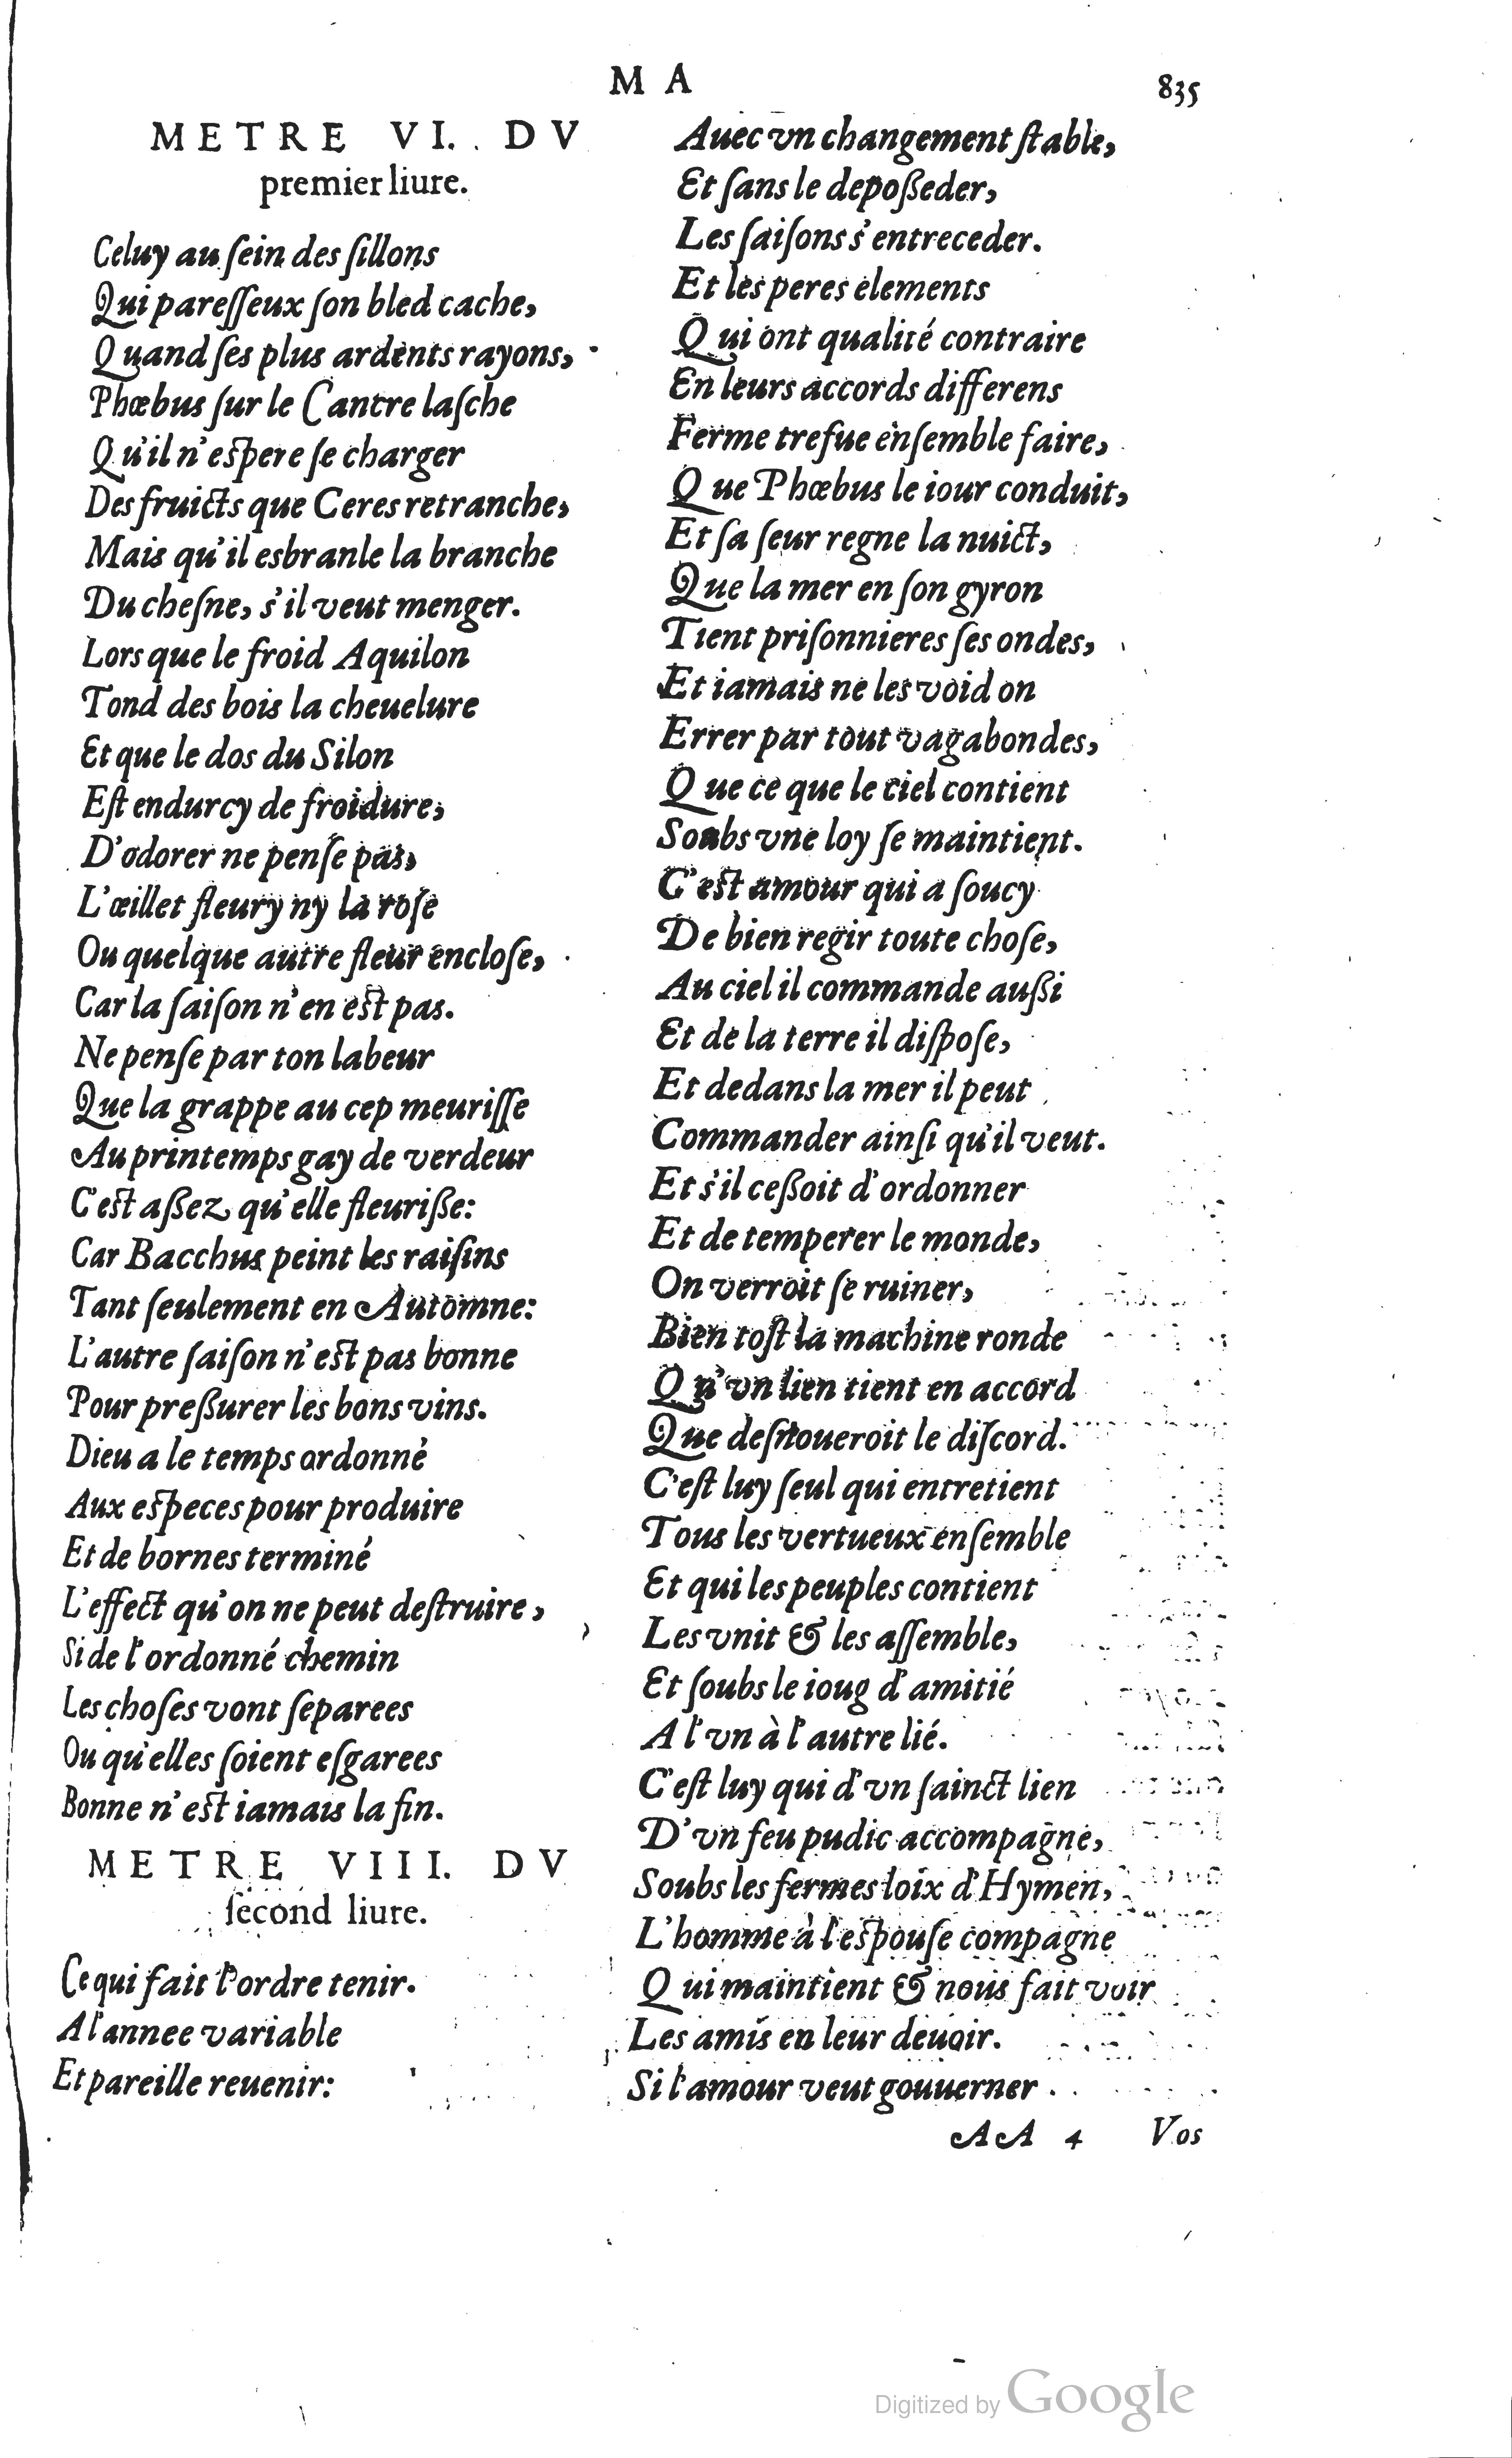 M A
835
METRE VI. DV
premier liure.
Celuy au ſein des ſillons
Qui pareſſeux ſon bled cache,
Quand ſes plus ardents rayons,
Phœbus ſur le Cancre laſche
Qu'il n'eſpere ſe charger
Des fruicts que Ceres retranche,
Mais qu'il esbranle la branche
Du cheſne, s'il veut menger.
Lors que le froid Aquilon
Tond des bois la cheuelure
Et que le dos du Silon
Eſt endurcy de froidure,
D'odorer ne penſe pas,
L'œillet fleury ny la roſe
Ou quelque autre fleur encloſe,
Car la ſaiſon n'en eſt pas.
Ne penſe par ton labeur
Que la grappe au cep meuriſſe
Au printemps gay de verdeur
C'eſt aßez qu'elle fleuriße:
Car Bacchus peint les raiſins
Tant ſeulement en Automne:
L'autre ſaiſon n'eſt pas bonne
Pour preßurer les bons vins.
Dieu a le temps ordonné
Aux eſpeces pour produire
Et de bornes terminé
L'effect qu'on ne peut deſtruire,
Si de l'ordonné chemin
Les choſes vont ſeparees
Ou qu'elles ſoient eſgarees
Bonne n'eſt iamais la fin.
METRE VIII. DV
ſecond liure.
Ce qui fait l'ordre tenir.
A l'annee variable
Et pareille reuenir:
Auec vn changement ſtable,
Et ſans le depoßeder,
Les ſaiſons s'entreceder.
Et les peres elements
Qui ont qualité contraire
En leurs accords differens
Ferme trefue enſemble faire,
Que Phœbus le iour conduit,
Et ſa ſeur regne la nuict,
Que la mer en ſon gyron
Tient priſonnieres ſes ondes,
Et iamais ne les void on
Errer par tout vagabondes,
Que ce que le ciel contient
Soubs vne loy ſe maintient.
C'eſt amour qui a ſoucy
De bien regir toute choſe,
Au ciel il commande außi
Et de la terre il diſpoſe,
Et dedans la mer il peut
Commander ainſi qu'il veut.
Et s'il ceßoit d'ordonner
Et de temperer le monde,
On verroit ſe ruiner,
Bien toſt la machine ronde
Qu'vn lien tient en accord
Que deſnoueroit le diſcord.
C'eſt luy ſeul qui entretient
Tous les vertueux enſemble
Et qui les peuples contient
Les vnit & les aſſemble,
Et ſoubs le ioug d'amitié
A l'vn à l'autre lié.
C'eſt luy qui d'vn ſainct lien
D'vn feu pudic accompagne,
Soubs les fermes loix d'Hymen,
L'homme à l'eſpouſe compagne
Qui maintient & nous fait voir
Les amis en leur deuoir.
Si l'amour veut gouuerner
AA 4 Vos
Digitized by Google